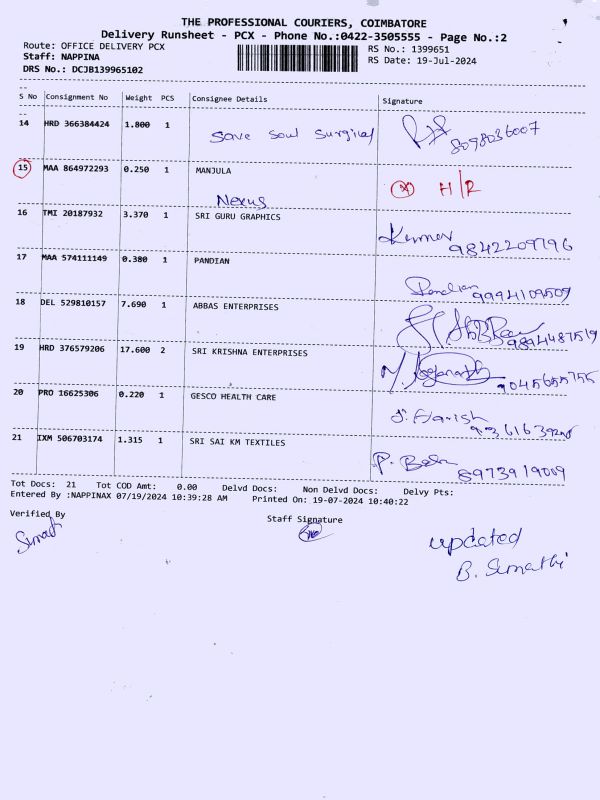 THE PROFESSIONAL COURIERS, COIMBATORE
Delivery Runsheet - PCX - Phone No.:0422-3505555 - Page No.:2
Route: OFFICE DELIVERY PCX RS No.: 1399651
Staff: NAPPINA RS Date: 19-Jul-2024
DRS No.: DCJB139965102
S No Consignment No Weight PCS Consignee Details Signature
14 HRD 366384424 1.800 1 Save Soul Surgical 8098036007
15 MAA 864972293 0.250 1 MANJULA H/R
Nexus
16 TMI 20187932 3.370 1 SRI GURU GRAPHICS
Kumar 9842209796
17 MAA 574111149 0.380 1 PANDIAN
Pandian 9994109509
18 DEL 529810157 7.690 1 ABBAS ENTERPRISES
9894487519
19 HRD 376579206 17.600 2 SRI KRISHNA ENTERPRISES
9045655755
20 PRO 16625306 0.220 1 GESCO HEALTH CARE
J. Harish
21 IXM 506703174 1.315 1 SRI SAI KM TEXTILES
P. Babu 8973919009
Tot Docs: 21 Tot COD Amt: 0.00 Delvd Docs: Non Delvd Docs: Delvy Pts:
Entered By :NAPPINAX 07/19/2024 10:39:28 AM Printed On: 19-07-2024 10:40:22
Verified By Staff Signature
Sumath
updated
B. Sumathi